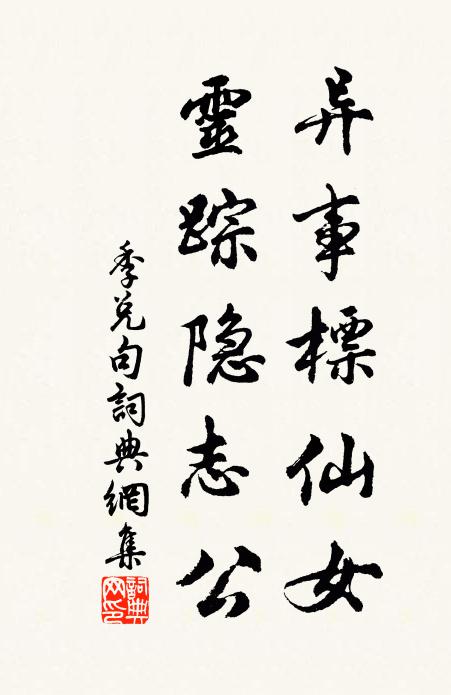 异事標仙女
靈踪隐志公
季兌句詞典網集
詞典网印